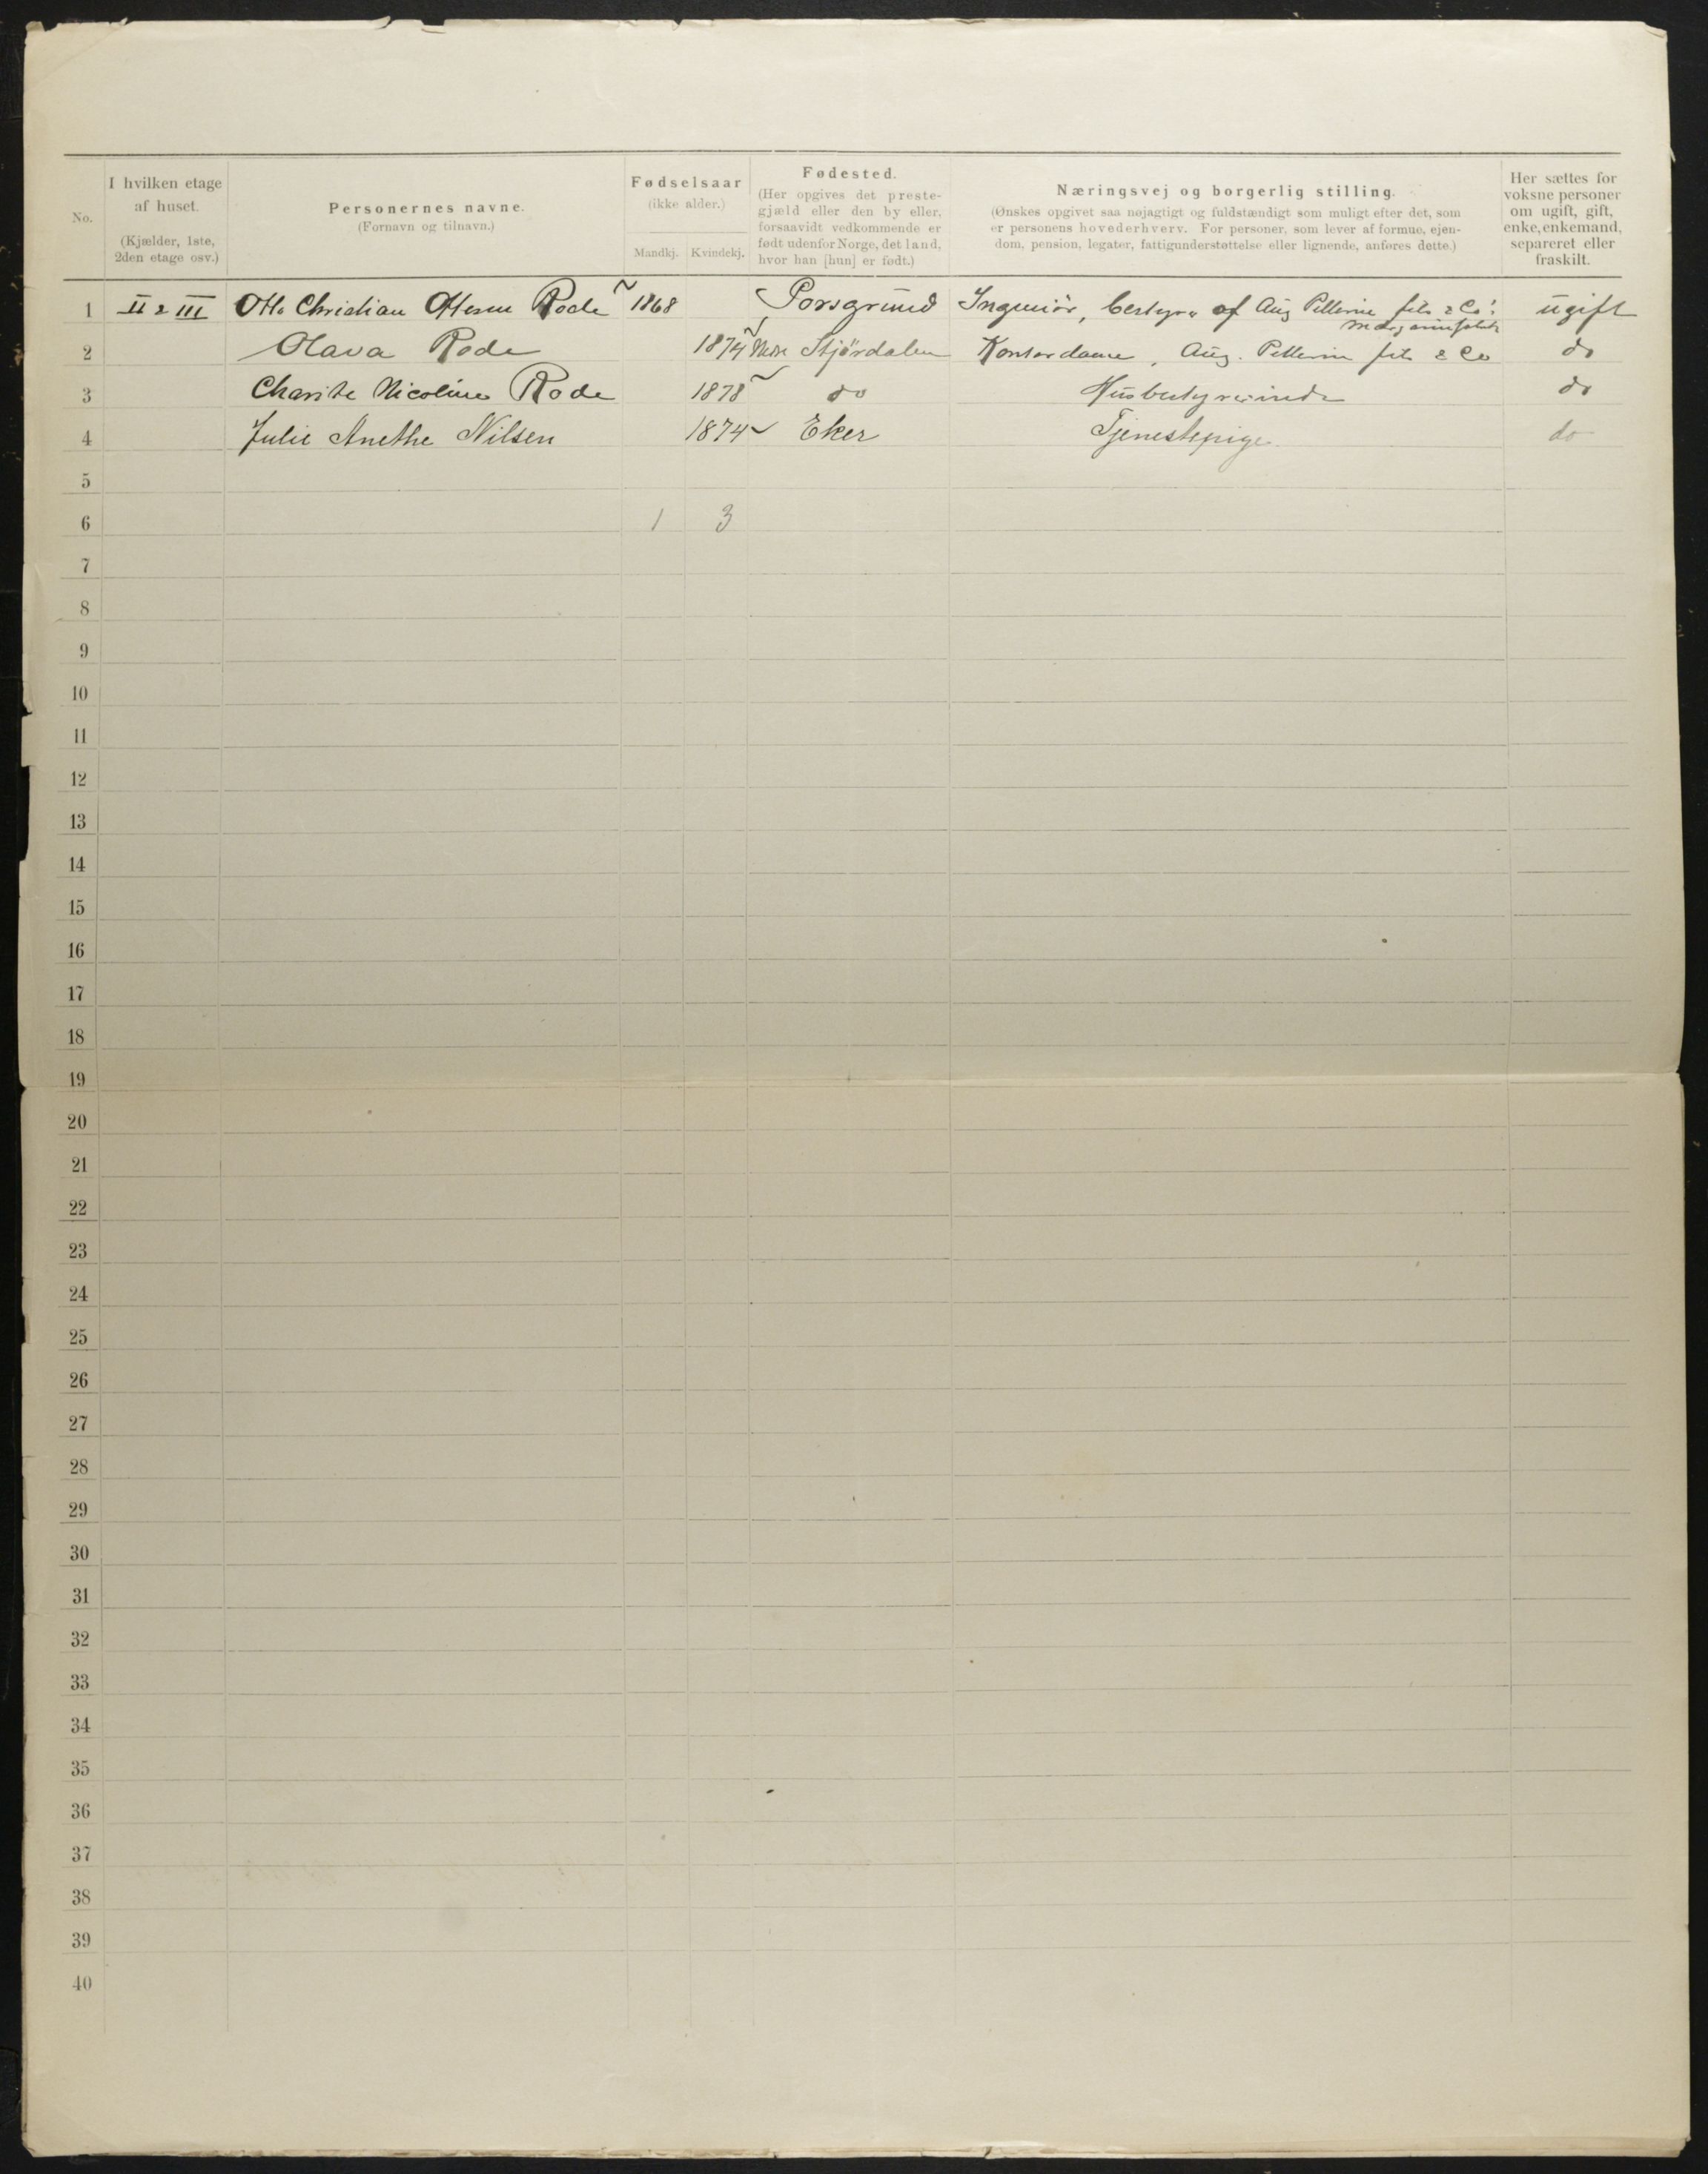 No.
I hvilken etage af huset.
(Kjælder, 1ste, 2den etage osv.)
Personernes navne.
(Fornavn og tilnavn.)
Fødselsaar
(ikke alder.)
Mandkj. Kvindekj.
Fødested.
(Her opgives det prestegjæld eller den by eller, forsaavidt vedkommende er født udenfor Norge, det land, hvor han [hun] er født.)
Næringsvej og borgerlig stilling.
(Ønskes opgivet saa nøjagtigt og fuldstændigt som muligt efter det, som er personens hovederhverv. For personer, som lever af formue, ejendom, pension, legater, fattigunderstøttelse eller lignende, anføres dette.)
Her sættes for voksne personer om ugift, gift, enke, enkemand, separeret eller fraskilt.
1 II & III Otto Christian Rode 1868 Porsgrund Ingeniör, af Aug Pellerin fils & Co's ugift
2 Olava Rode 1874 Nedre Stjördalen Kontordame, Aug. Pellerin fils & Co do
3 Charite Nicoline Rode 1878 do Husbestyrerinde do
4 Julie Anethe Nilsen 1874 Eker Tjenestepige do
5
6 1 3
7
8
9
10
11
12
13
14
15
16
17
18
19
20
21
22
23
24
25
26
27
28
29
30
31
32
33
34
35
36
37
38
39
40